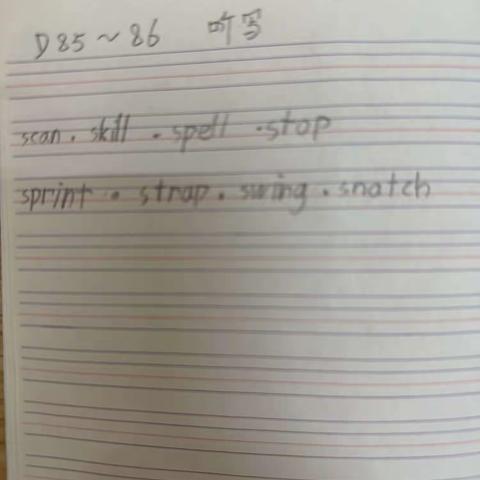 D85~86 听写
scan. skill. spell. stop
sprint. strap. swing. snatch